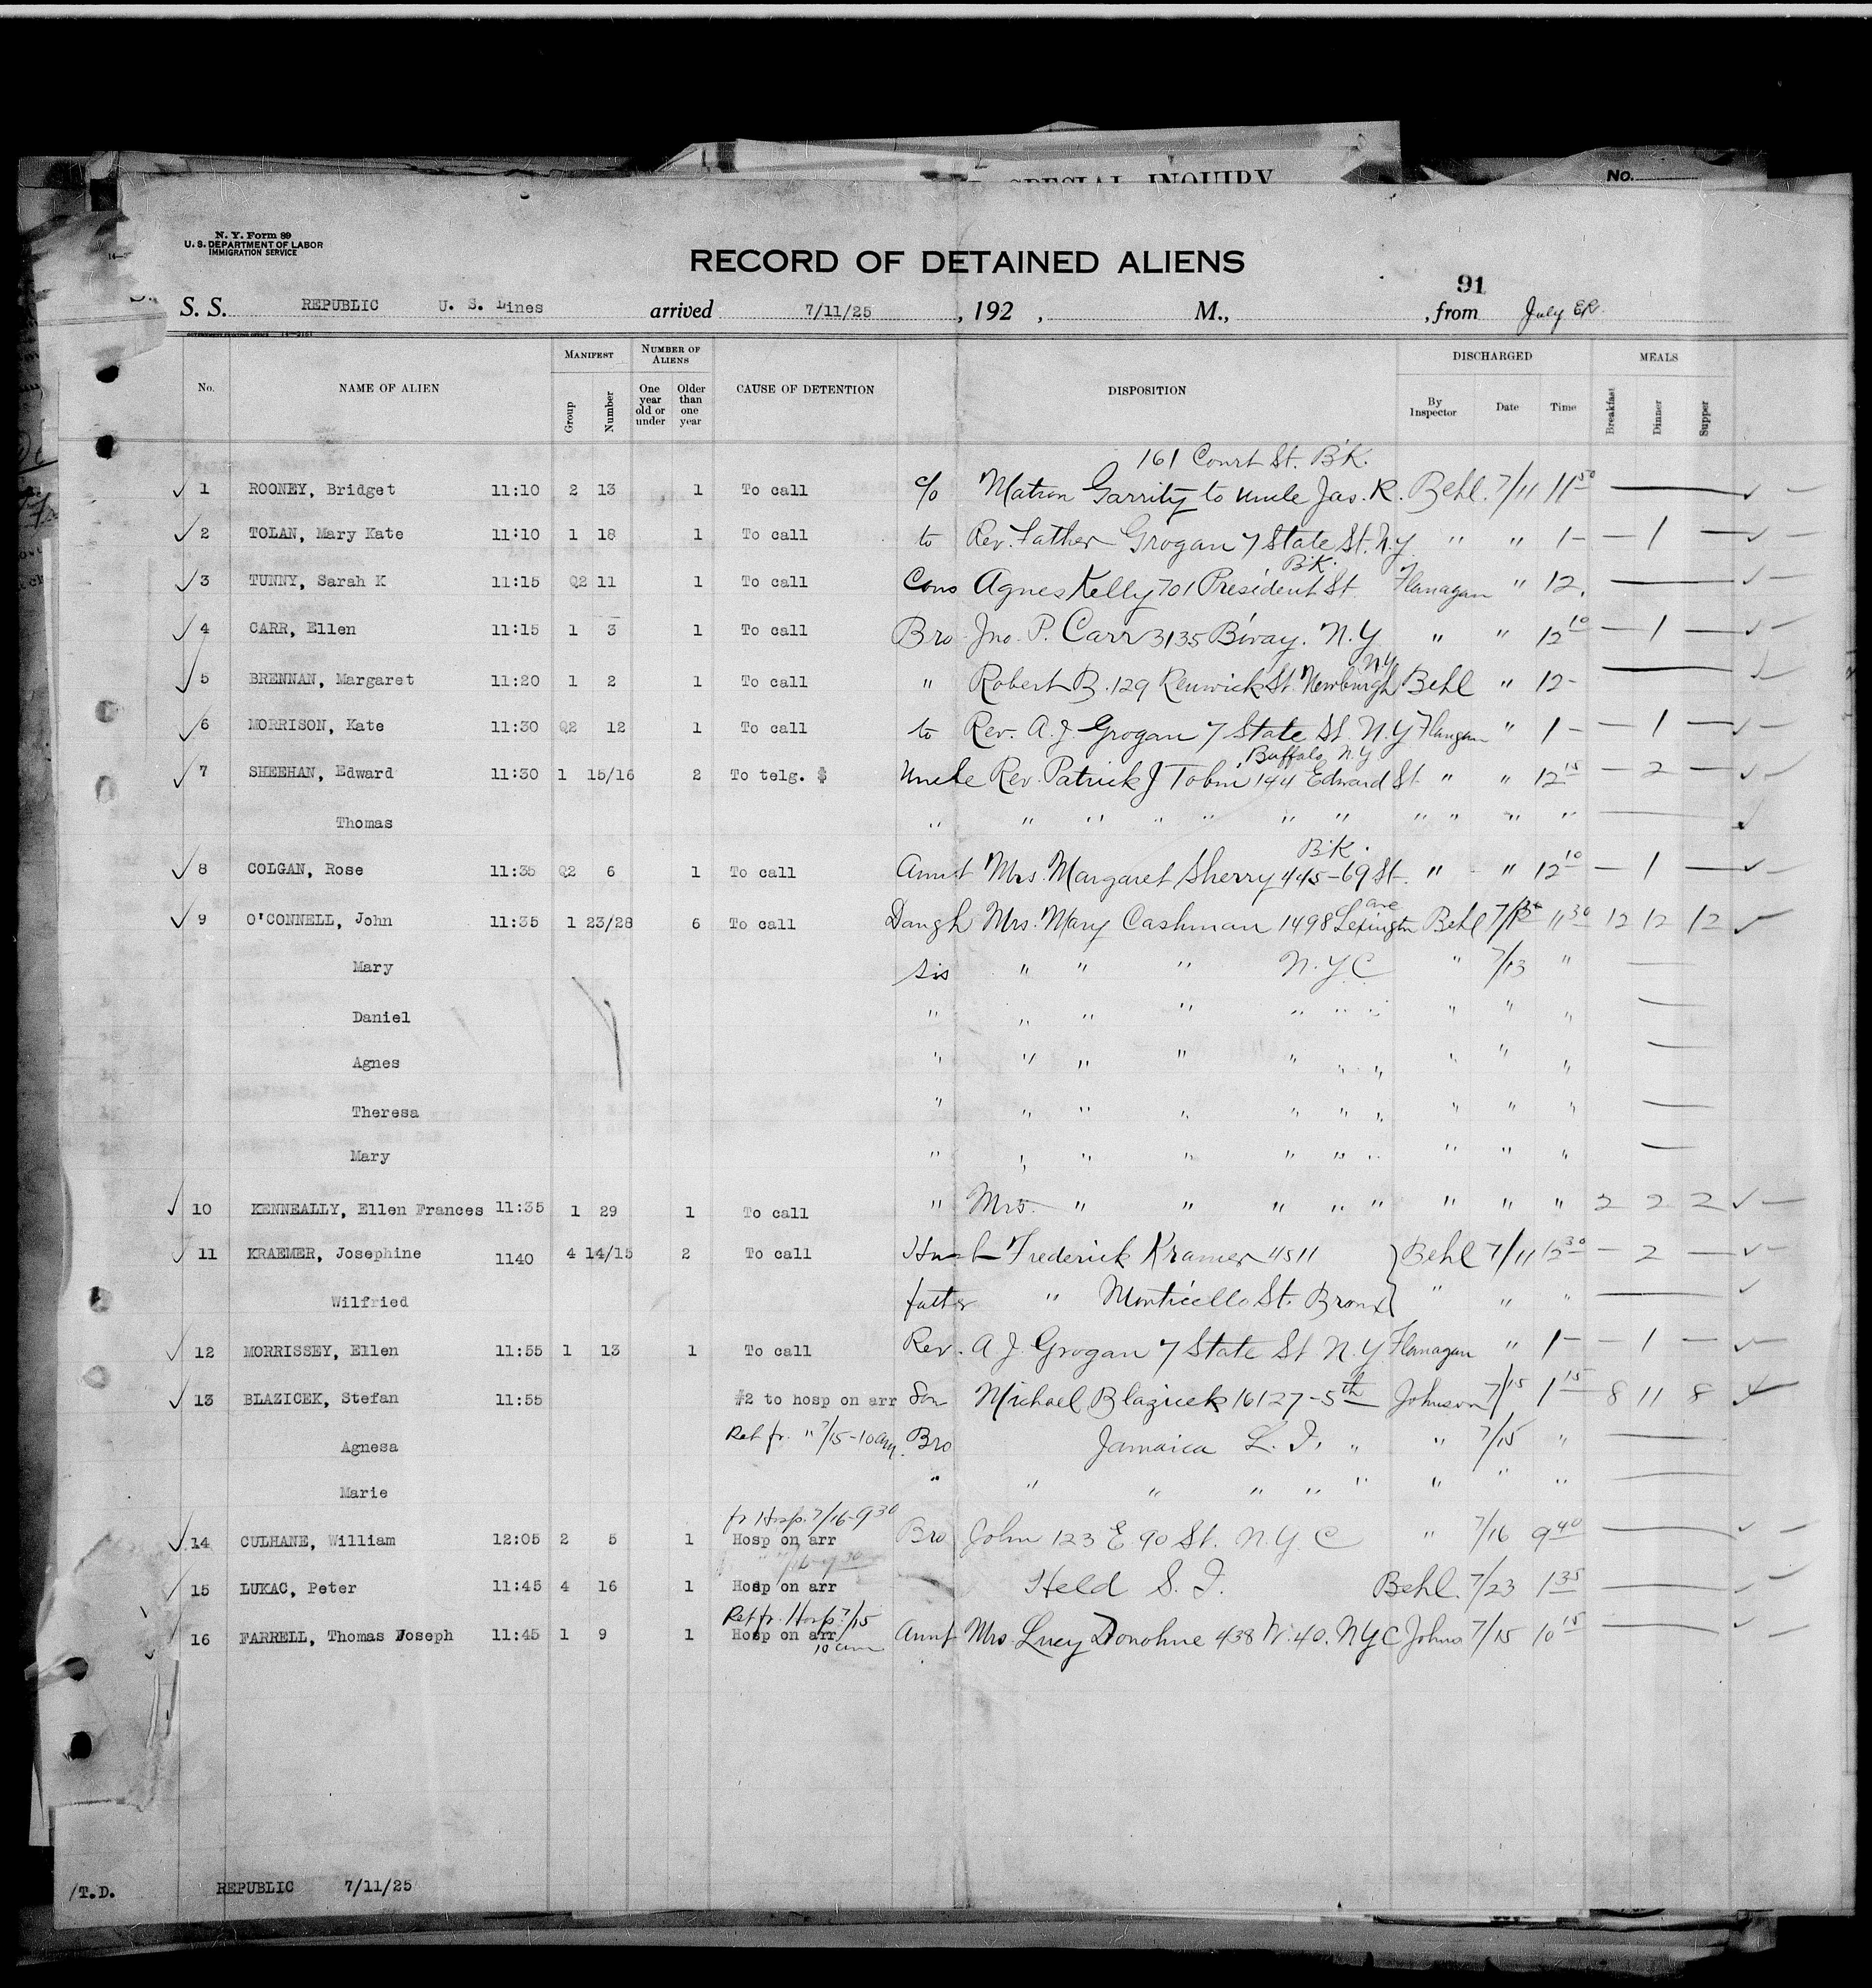 SPECIAL INQUIRY
No.
N. Y. Form 89
U. S. DEPARTMENT OF LABOR
IMMIGRATION SERVICE
RECORD OF DETAINED ALIENS
91
S. S. REPUBLIC U. S. Lines arrived 7/11/25, 192 , M., , from July ER
No. NAME OF ALIEN MANIFEST Group Number NUMBER OF ALIENS One year old or under Older than one year CAUSE OF DETENTION DISPOSITION DISCHARGED By Inspector Date Time MEALS Breakfast Dinner Supper
161 Court St. B'K.
1 ROONEY, Bridget 11:10 2 13 1 To call c/o Matron Garrity to uncle Jas. R. Behl. 7/11 11 50 —
2 TOLAN, Mary Kate 11:10 1 18 1 To call to Rev. Father Grogan 7 State St. N.Y. " " 1- — 1 —
B'K.
3 TUNNY, Sarah K 11:15 Q2 11 1 To call Cous Agnes Kelly 701 President St. Flanagan " 12. —
4 CARR, Ellen 11:15 1 3 1 To call Bro Jno. P. Carr 3135 B'way. N.Y " " 12 10 — 1 —
N.Y
5 BRENNAN, Margaret 11:20 1 2 1 To call " Robert B. 129 Renwick St. Newburgh Behl " 12- —
6 MORRISON, Kate 11:30 Q2 12 1 To call to Rev. A. J. Grogan 7 State St. N.Y Flangan " 1 - — 1 —
Buffalo, N.Y
7 SHEEHAN, Edward 11:30 1 15/16 2 To telg. $ Uncle Rev. Patrick J Tobin 144 Edward St. " " 12 15 — 2 —
Thomas " " " " " " " " " " " —
B'K.
8 COLGAN, Rose 11:35 Q2 6 1 To call Aunt Mrs. Margaret Sherry 445-69 St. " " 12 10 — 1 —
ave
9 O'CONNELL, John 11:35 1 23/28 6 To call Daugh Mrs. Mary Cashman 1498 Lexington Behl 7/13 11 30 12 12 12
Mary Sis " " " N.Y.C " 7/13 " —
Daniel " " " " " " " " " " —
Agnes " " " " " " " " " " —
Theresa " " " " " " " " " " —
Mary " " " " " " " " " " —
10 KENNEALLY, Ellen Frances 11:35 1 29 1 To call " Mrs. " " " " " " " " 2 2 2
11 KRAEMER, Josephine 1140 4 14/15 2 To call Husb Frederick Kramer 4511 Behl 7/11 12 30 — 2 —
Wilfried father " Monticello St. Bronx " " " —
12 MORRISSEY, Ellen 11:55 1 13 1 To call Rev. A J Grogan 7 State St N.Y. Flanagan " 1- — 1 —
13 BLAZICEK, Stefan 11:55 #2 to hosp on arr Son Michael Blazicek 16127-5th Johnson 7/15 1 15 8 11 8
Agnesa Ret fr. " 7/15-10am. Bro Jamaica L. I. " " 7/15 " —
Marie " " " " " " " " " —
fr Hosp. 7/16-9 30
14 CULHANE, William 12:05 2 5 1 Hosp on arr Bro John 123 E 90 St. N.Y.C " 7/16 9 40 —
15 LUKAC, Peter 11:45 4 16 1 Hosp on arr Held S. I. Behl. 7/23 1 35 —
Ret fr. Hosp. 7/15
16 FARRELL, Thomas Joseph 11:45 1 9 1 Hosp on arr Aunt Mrs. Lucy Donohue 438 W. 40. NYC Johns 7/15 10 15 —
10 am
/T.D. REPUBLIC 7/11/25